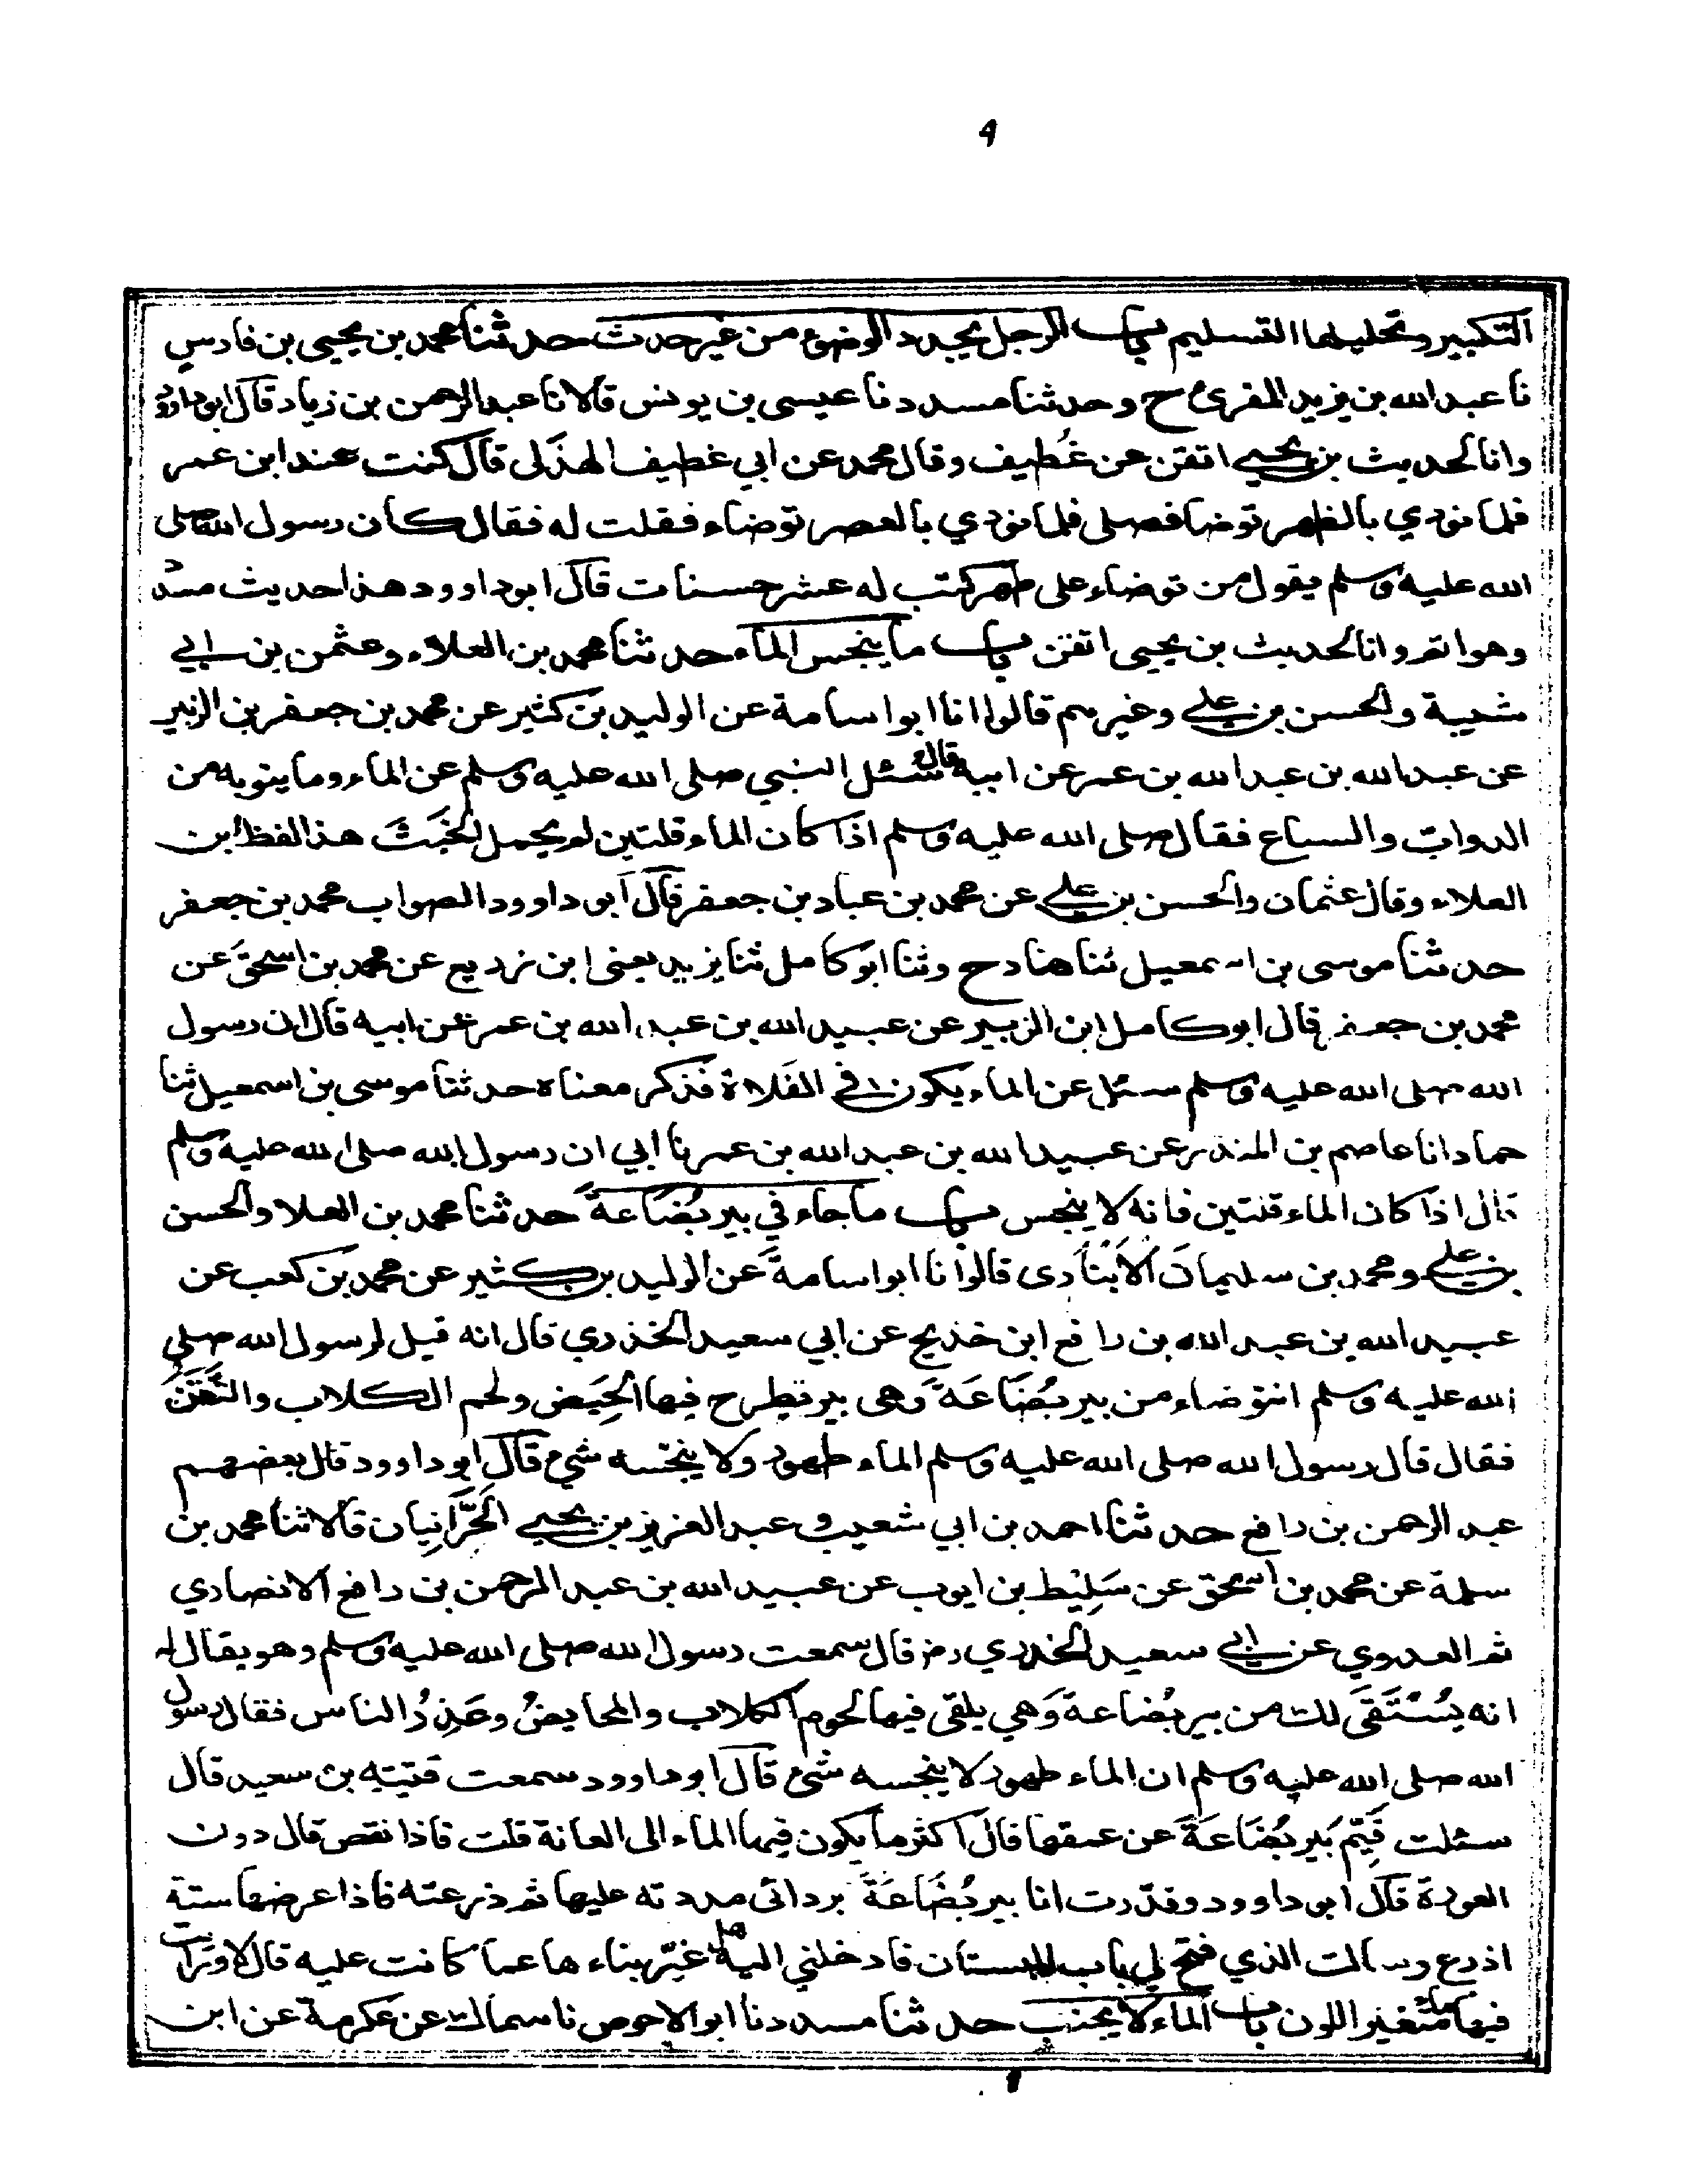 4
التكبير وتحليلها التسليم باب الرجل يجدد الوضوء من غير حدث حدثنا محمد بن يحيى بن فارس
نا عبد الله بن يزيد المقرئ ح وحدثنا مسدد نا عيسى بن يونس قالا نا عبد الرحمن بن زياد قال ابو داود
وانا لحديث بن يحيى اتقن عن غُطيف وقال محمد عن ابي غطيف الهذلى قال كنت عند ابن عمر
فلما نودي بالظهر توضا فصلى فلما نودي بالعصر توضاء فقلت له فقال كان رسول الله صلى
الله عليه وسلم يقول من توضاء على طهر كتب له عشر حسنات قال ابو داوود هذا حديث مسدد
وهو اتم وانا لحديث بن يحيى اتقن باب ما ينجس الماء حدثنا محمد بن العلاء وعثمن بن ابي
شيبة والحسن بن علي وغيرهم قالوا انا ابو اسامة عن الوليد بن كثير عن محمد بن جعفر بن الزبير
عن عبد الله بن عبد الله بن عمر عن ابيه قال سئل النبي صلى الله عليه وسلم عن الماء وما ينوبه من
الدواب والسباع فقال صلى الله عليه وسلم اذا كان الماء قلتين لم يحمل الخَبَثَ هذا لفظ ابن
العلاء وقال عثمان والحسن بن علي عن محمد بن عباد بن جعفر قال ابو داوود الصواب محمد بن جعفر
حدثنا موسى بن اسمعيل ثنا حماد ح وثنا ابو كامل ثنا يزيد يعنى ابن زريع عن محمد بن اسحق عن
محمد بن جعفر قال ابو كامل ابن الزبير عن عبيد الله بن عبد الله بن عمر عن ابيه قال ان رسول
الله صلى الله عليه وسلم سئل عن الماء يكون في الفلاة فذكر معناه حدثنا موسى بن اسمعيل ثنا
حماد انا عاصم بن المنذر عن عبيد الله بن عبد الله بن عمر نا ابي ان رسول الله صلى الله عليه وسلم
قال اذا كان الماء قلتين فانه لا ينجس باب ما جاء في بير بُضَاعةَ حدثنا محمد بن العلا والحسن
بن علي ومحمد بن سليمان الاَنْبَاري قالوا نا ابو اسامة عن الوليد بن كثير عن محمد بن كعب عن
عبيد الله بن عبد الله بن رافع ابن خديج عن ابي سعيد الخدري قال انه قيل لرسول الله صلى
الله عليه وسلم انتوضاء من بير بُضَاعَةَ وَهى بير تطرح فيها الحِيَض ولحم الكلاب والنتن
فقال قال رسول الله صلى الله عليه وسلم الماء طهور ولا ينجسه شيء قال ابو داوود قال بعضهم
عبد الرحمن بن رافع حدثنا احمد بن ابي شعيب وعبد العزيز بن يحيى الحَرَّانِيان قالا ثنا محمد بن
سلمة عن محمد بن اسحق عن سَلِيْط بن ايوب عن عبيد الله بن عبد الرحمن بن رافع الانصاري
ثم العدوي عن ابي سعيد الخدري رض قال سمعت رسول الله صلى الله عليه وسلم وهو يقال له
انه يُسْتَقَى لك من بير بُضاعةَ وَهي يلقى فيها لحوم الكلاب والمحايضُ وعَذِرُ الناس فقال رسول
الله صلى الله عليه وسلم ان الماء طهور لا ينجسه شيء قال ابو داوود سمعت قتيبة بن سعيد قال
سئلت قَيِّمَ بَير بُضَاعَةَ عن عمقها قال اكثر ما يكون فيها الماء الى العانة قلت فاذا نقص قال دون
العورة قال ابو داوود وقدرت انا بير بُضَاعَةَ بردائى مددته عليها ثم ذرعته فاذا عرضها ستة
اذرع وسالت الذي فتح لي باب البستان فادخلني اليه هل غيّر بناءها عما كانت عليه قال لا ورايت
فيها ماء متغير اللون باب الماء لا يجنب حدثنا مسدد نا ابو الاحوص نا سماك عن عكرمة عن ابن